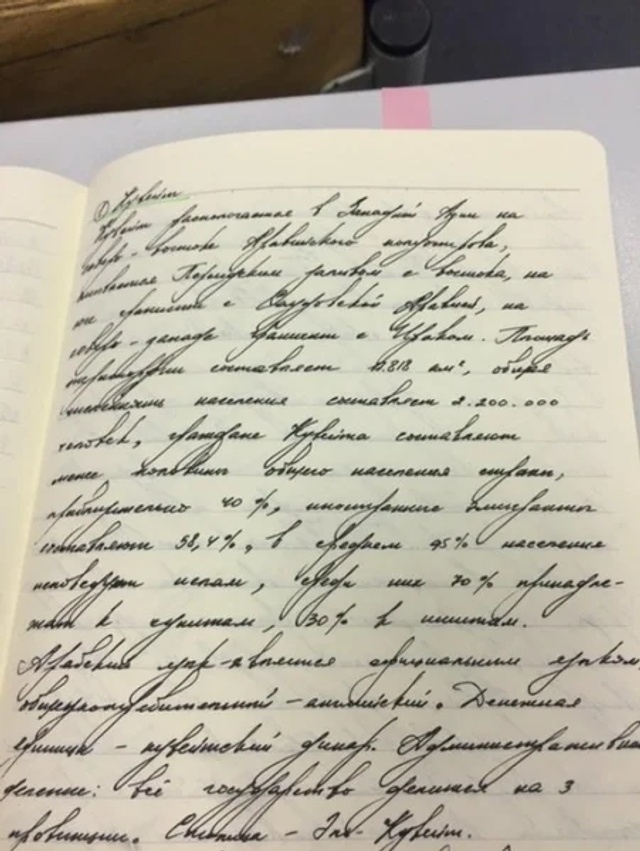 ① Кувейт
Кувейт расположенное в Западной Азии на
северо-востоке Аравийского полуострова,
омывается Персидским заливом с востока, на
юге граничит с Саудовской Аравией, на
северо-западе граничит с Ираком. Площадь
территории составляет 17.818 км², общая
численность населения составляет 2.200.000
человек, граждане Кувейта составляют
менее половины общего населения страны,
приблизительно 40%, иностранные эмигранты
составляют 58,4%, в среднем 95% населения
исповедуют ислам, среди них 70% принадле-
жат к суннитам, 30% к шиитам.
Арабский язык является официальным языком,
общеупотребительный - английский. Денежная
единица - кувейтский динар. Административное
деление: всё государство делится на 3
провинции. Столица - Эль-Кувейт.